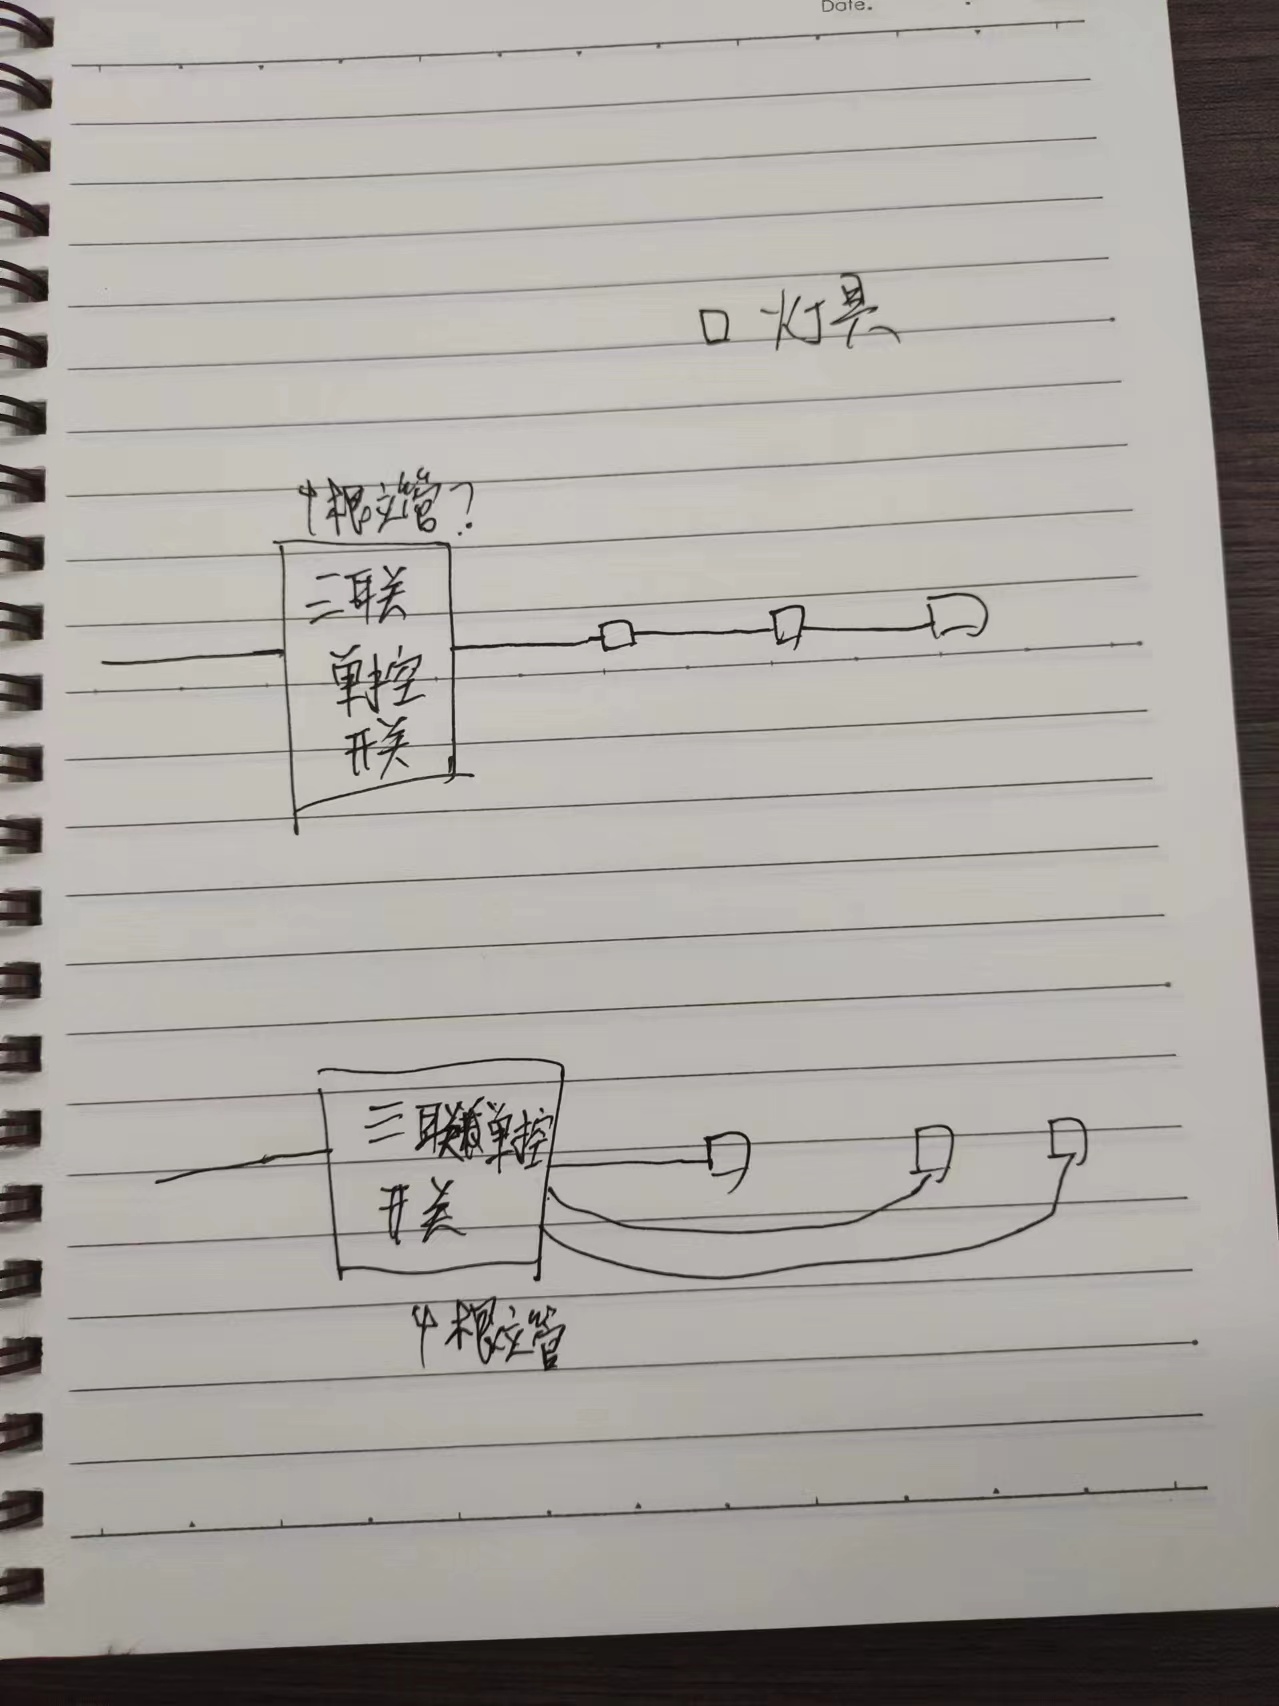 Date.
口 灯具
4根立管?
三联
单控
开关
三联单控
开关
4根立管